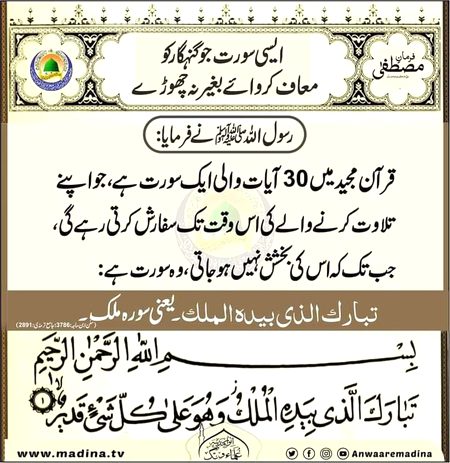 فرمان مصطفیٰ ﷺ
ایسی سورت جو گنہگار کو
معاف کروائے بغیر نہ چھوڑے
رسول اللہ ﷺ نے فرمایا:
قرآن مجید میں 30 آیات والی ایک سورت ہے، جو اپنے
تلاوت کرنے والے کی اس وقت تک سفارش کرتی رہے گی،
جب تک کہ اس کی بخشش نہیں ہوجاتی، وہ سورت ہے:
تبارك الذی بیدہ الملك۔ یعنی سورہ ملک۔
(سنن ابن ماجہ:3786؛ جامع ترمذی:2891)
بِسْمِ اللهِ الرَّحْمٰنِ الرَّحِيْمِ
تَبَارَكَ الَّذِي بِيَدِهِ الْمُلْكُ وَهُوَ عَلٰى كُلِّ شَيْءٍ قَدِيْرُ ۝۱
www.madina.tv
Anwaaremadina